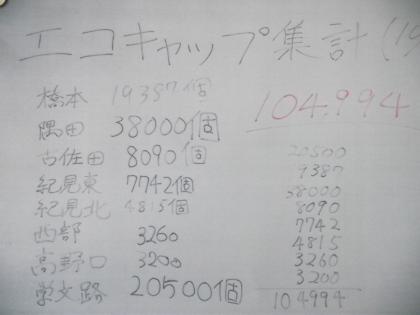 エコキャップ集計(19
104,994
橋本 19387個
隅田 38000個
古佐田 8090個
紀見東 7742個
紀見北 4815個
西部 3260
高野口 3200
学文路 20500個
20500
19387
38000
8090
7742
4815
3260
3200
104994